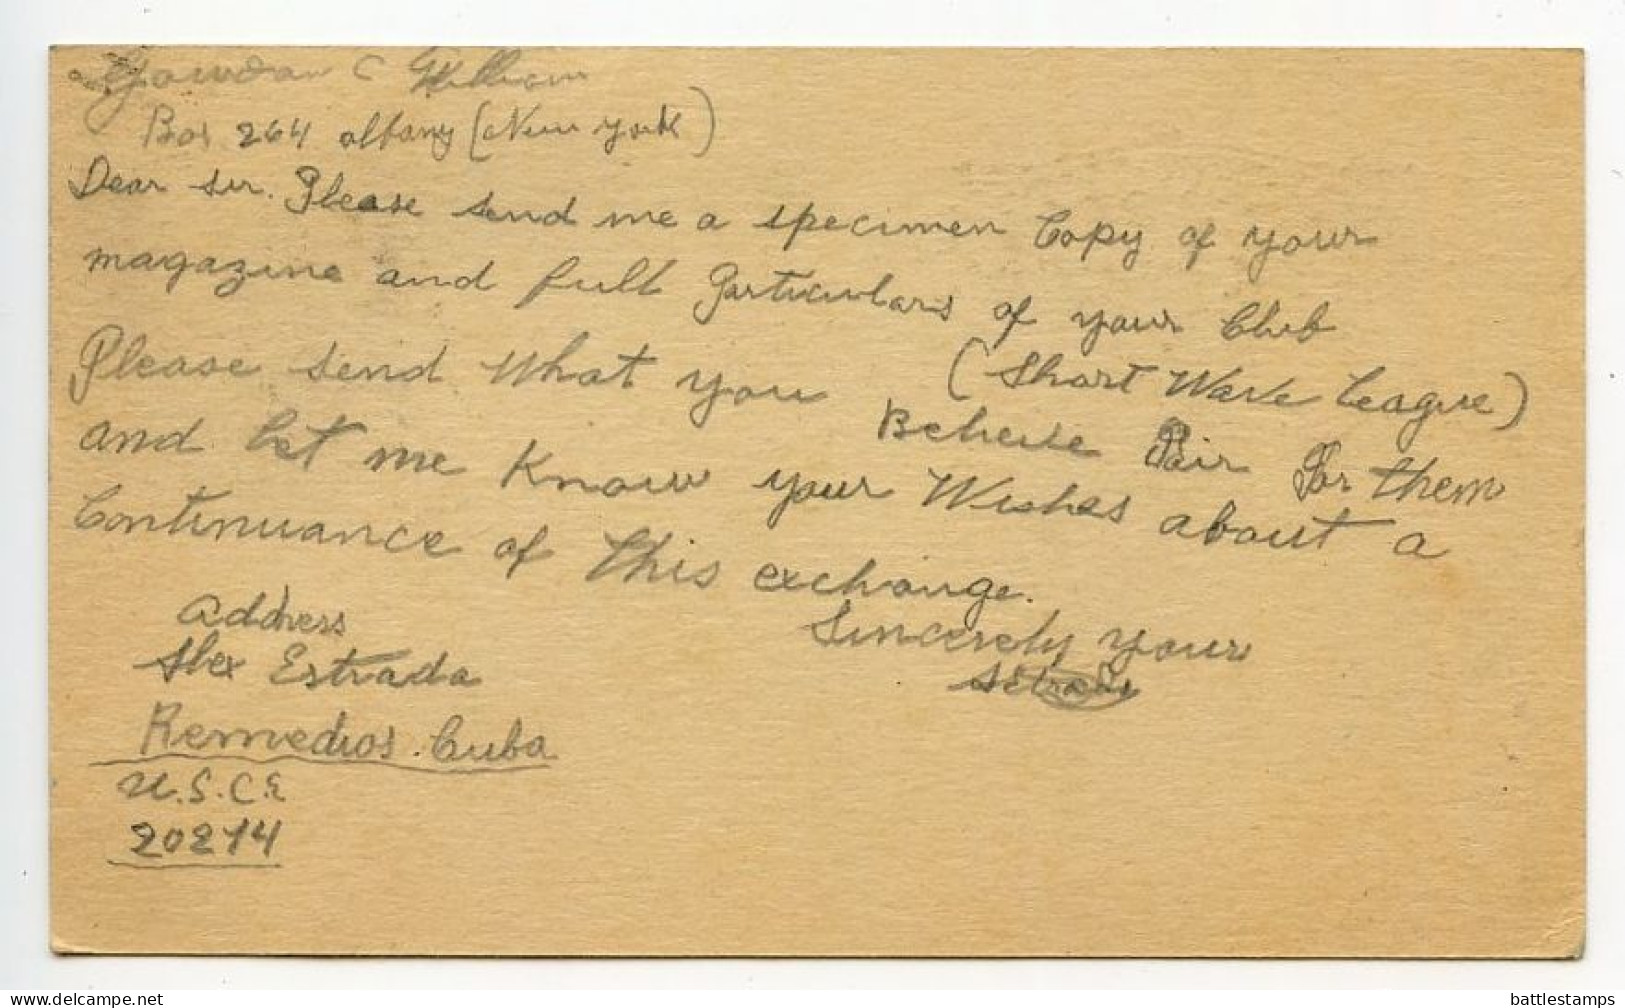 C William
Box 264 Albany (New York)
Dear Sir. Please send me a specimen Copy of your
magazine and full Particulars of your Club
(Short Wave League)
Please send What you Beheive Fair For them
and let me Know your Wishes about a
Continuance of this exchange.
Sincerely your
Address
Alex Estrada
Remedios. Cuba
U.S.C.E
20274
delcampe.net
battlestamps